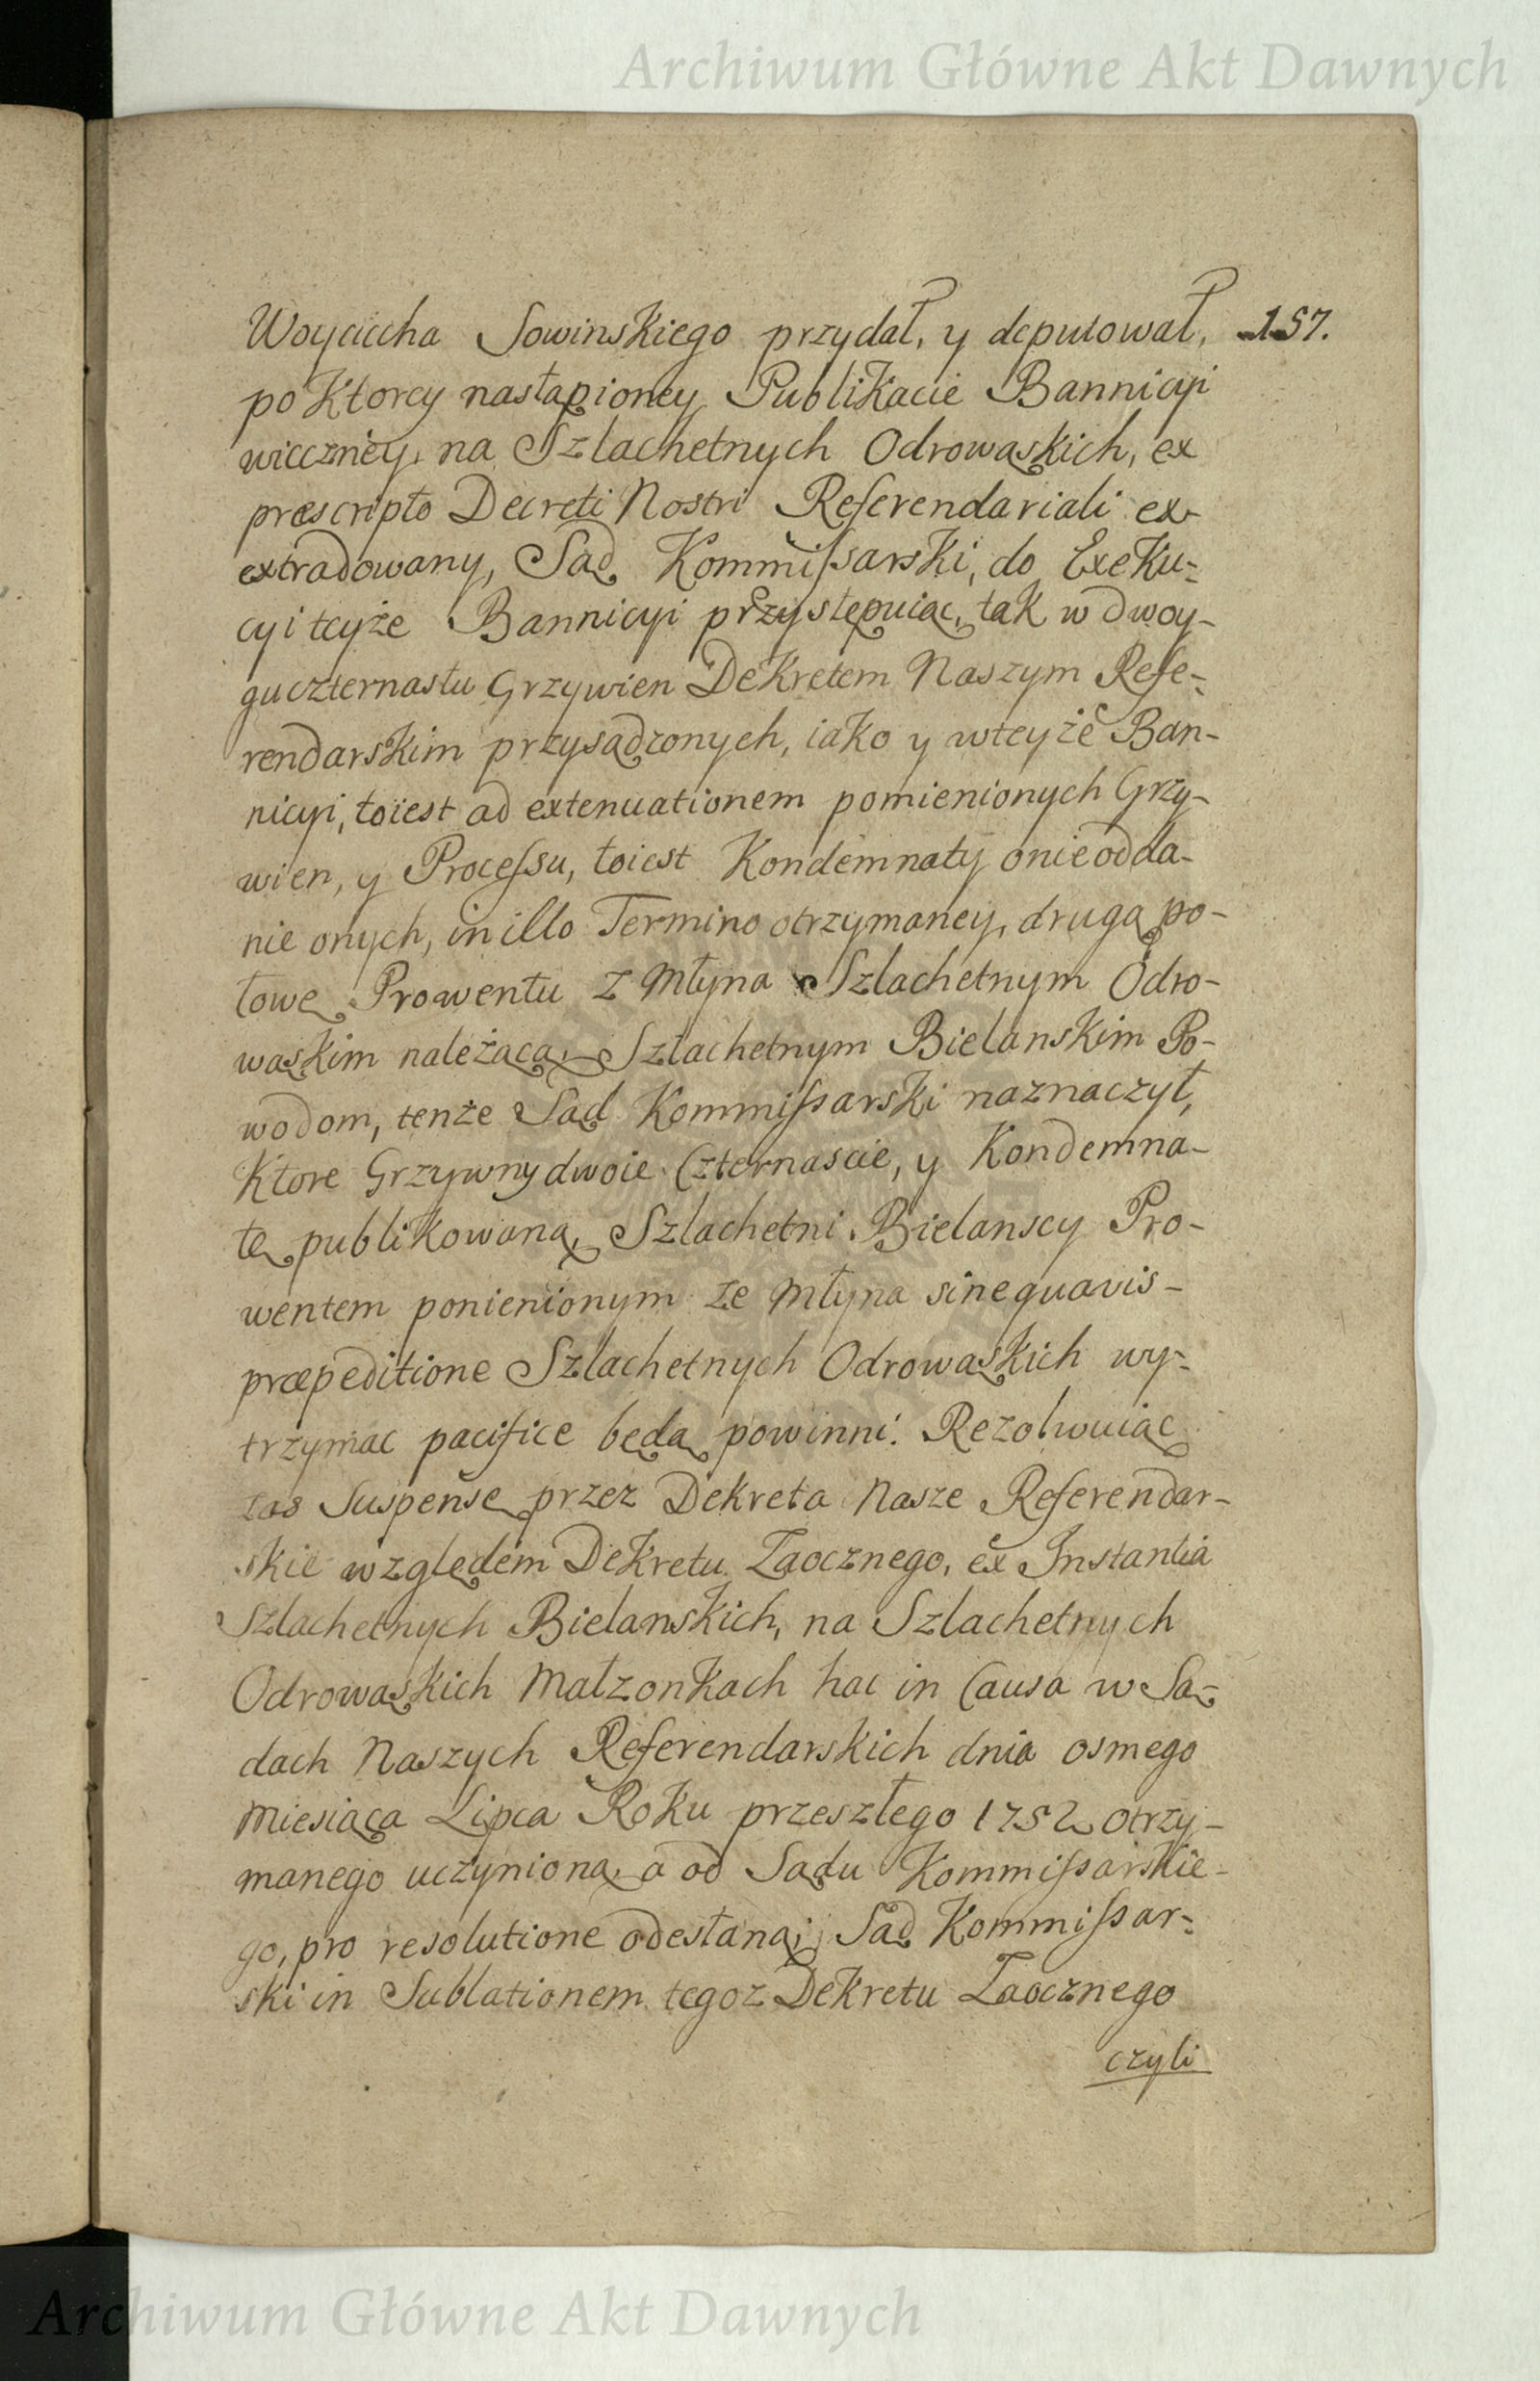 Archiwum Główne Akt Dawnych
157.
Woyciecha Sowinskiego przydał, y deputował,
po Ktorey nastąpioney Publikacie Bannicyi
wieczney, na Szlachetnych Odrowąskich, ex
præscripto Decreti Nostri Referendariali ex-
extradowany, Sąd Kommissarski, do Exeku-
cyi teyże Bannicyi przystępuiąc, tak w dwoy-
gu czternastu Grzywien Dekretem Naszym Refe-
rendarskim przysądzonych, iako y wteyże Ban-
nicyi, toiest ad extenuationem pomienionych Grzy-
wien, y Processu, toiest Kondemnaty onieodda-
nie onych, in illo Termino otrzymaney, drugą po-
łowę Prowentu z Młyna Szlachetnym Odro-
wąskim należącą, Szlachetnym Bielanskim Po-
wodom, tenże Sąd Kommissarski naznaczył,
Ktore Grzywny dwoie Czternascie, y Kondemna-
tę publikowaną, Szlachetni Bielanscy Pro-
wentem ponienionym ze Młyna sine quavis-
præpeditione Szlachetnych Odrowąskich wy-
trzymac pacifice będą powinni. Rezolwuiąc
zas Suspensę przez Dekreta Nasze Referendar-
skie względem Dekretu Zaocznego, ex Instantia
Szlachetnych Bielanskich, na Szlachetnych
Odrowąskich Małzonkach hac in Causa w Są-
dach Naszych Referendarskich dnia osmego
Miesiąca Lipca Roku przeszłego 1752 otrzy-
manego uczynioną, a od Sądu Kommissarskie-
go, pro resolutione odesłaną; Sąd Kommissar-
ski in Sublationem tegoz Dekretu Zaocznego
czyli
Archiwum Główne Akt Dawnych